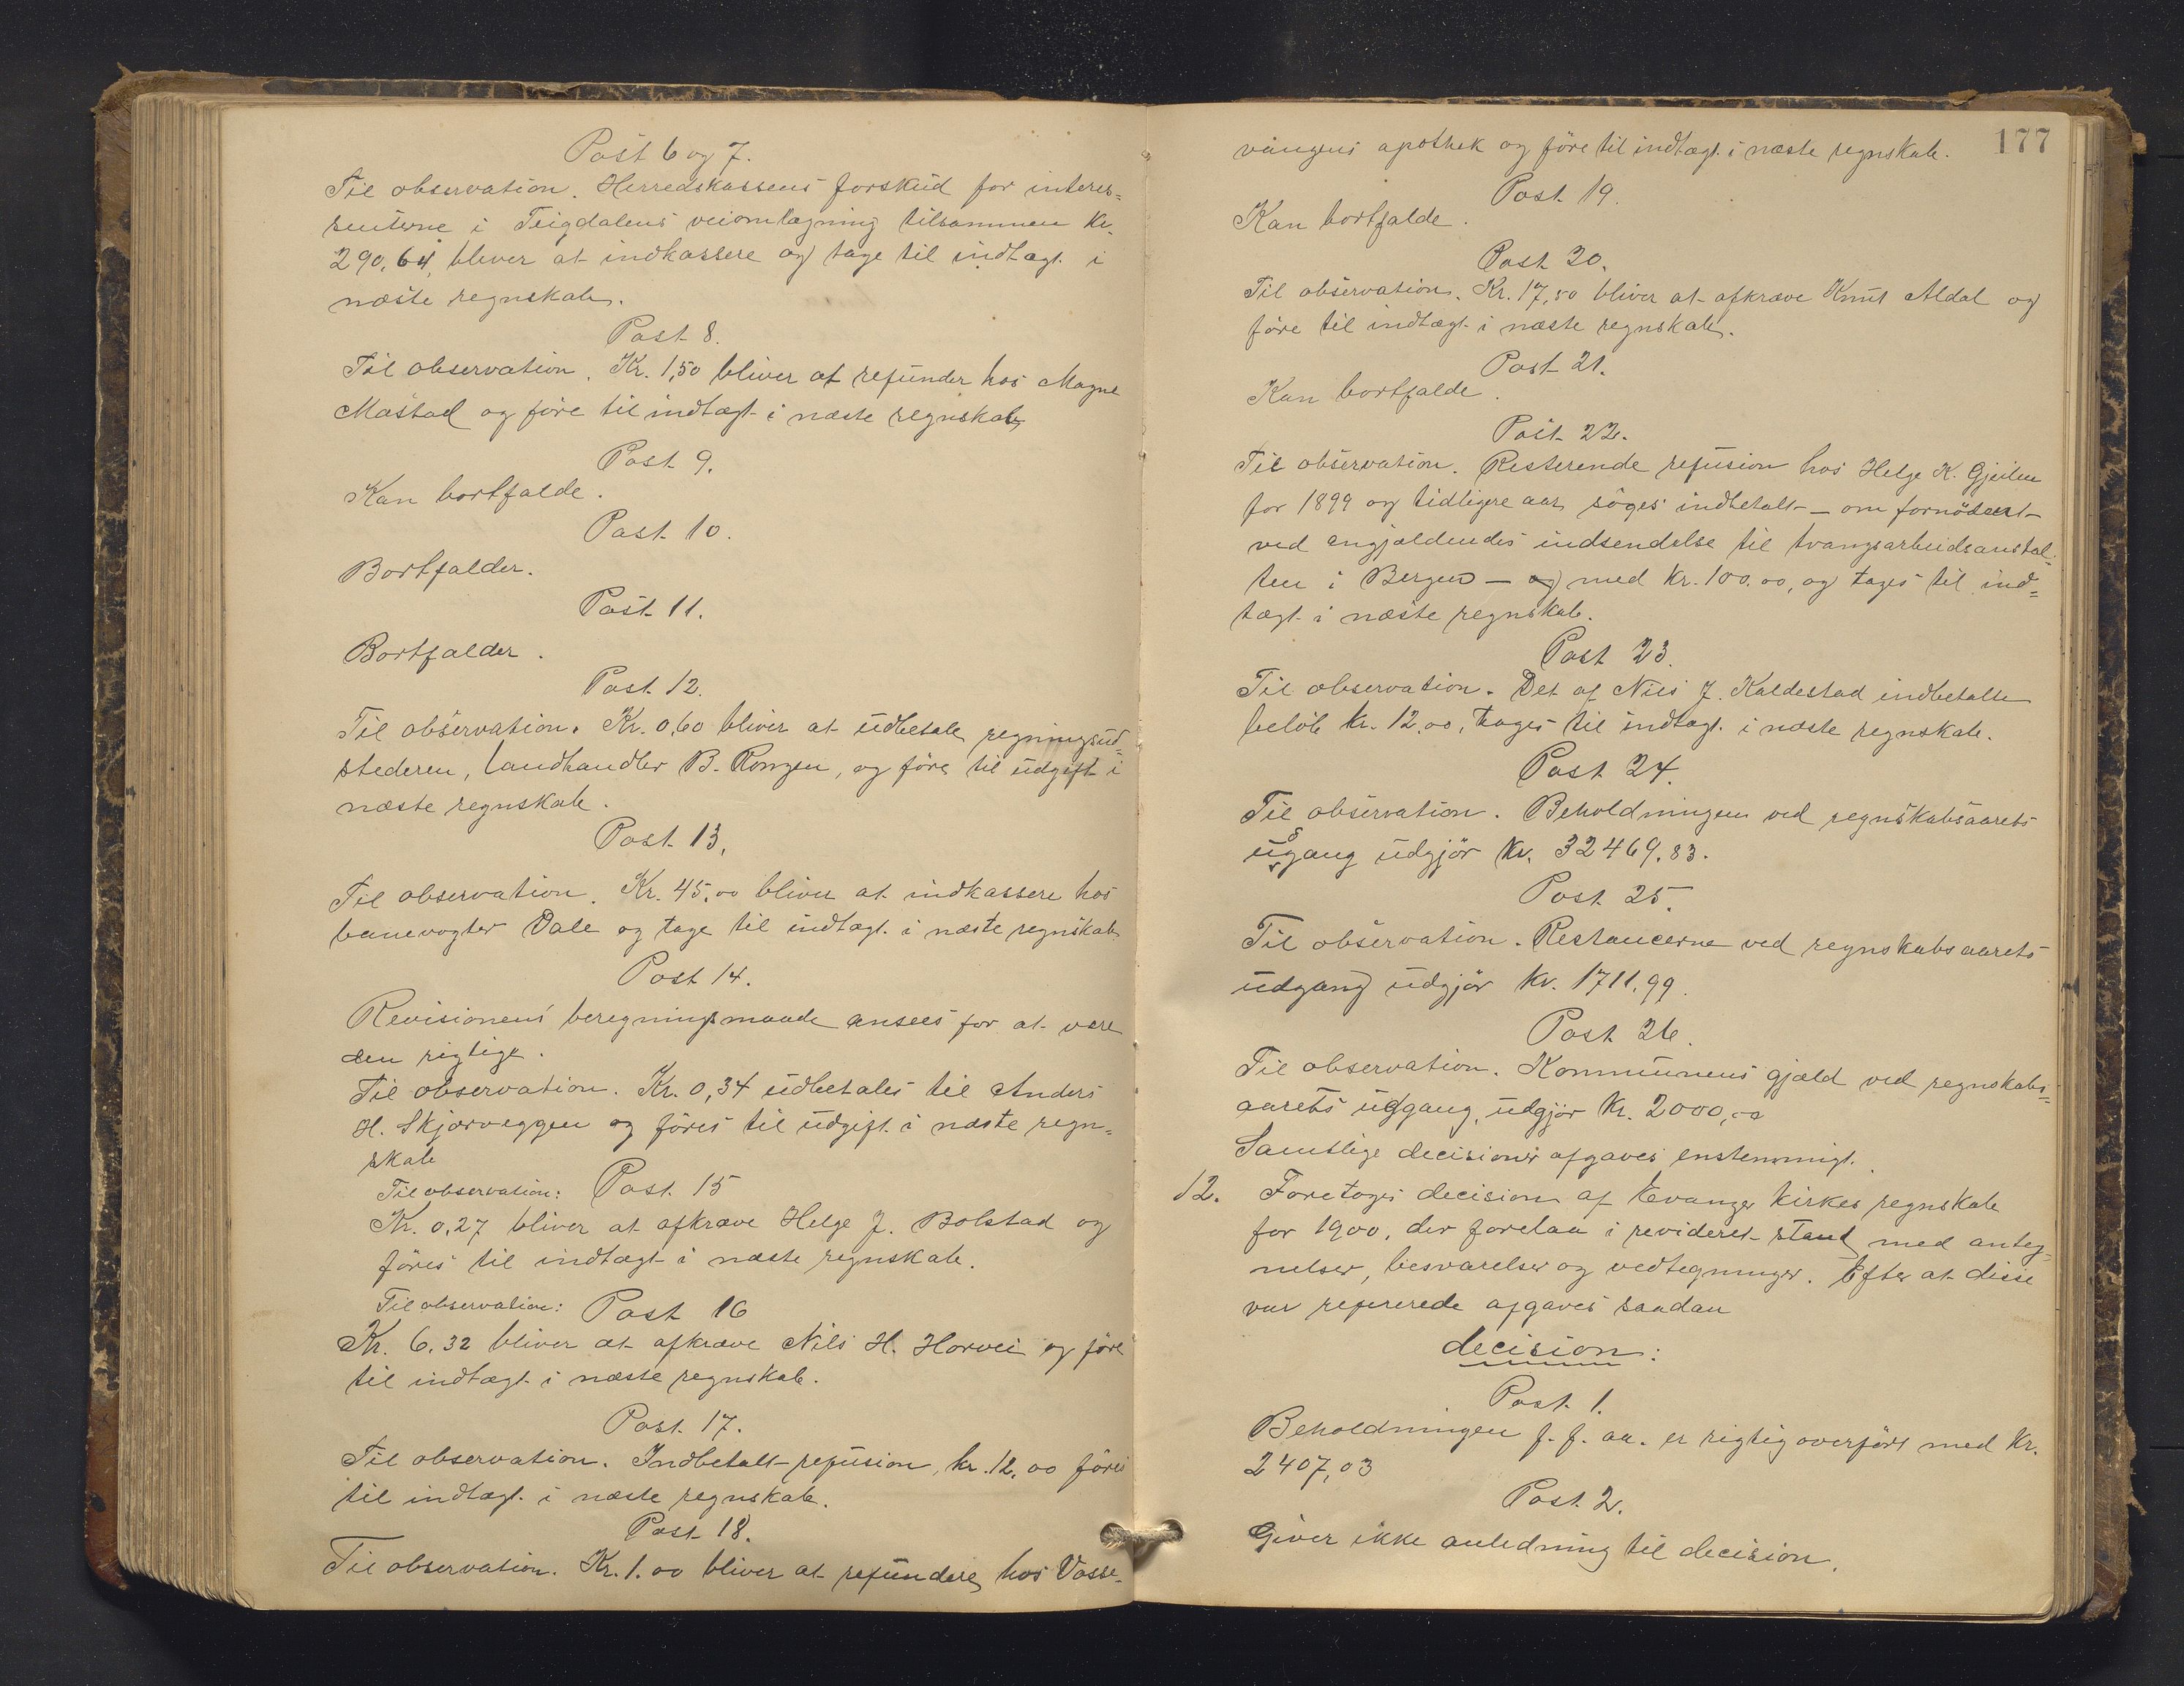 Post 6 og 7.
Til observation. Herredskassens forskud for interes-
senterne i Teigdalens veiomlægning tilsammen kr.
290,64, bliver at indkassere og tage til indtægt i
næste regnskab.
Post 8.
Til observation. Kr. 1,50 bliver at refunder hos Magne
Mastad og føre til indtægt i næste regnskab
Post 9.
Kan bortfalde.
Post 10.
Bortfalder.
Post 11.
Bortfalder.
Post 12.
Til observation. Kr. 0,60 bliver at udbetale regningsud-
stederen, landhandler B. Rongen, og føre til udgift i
næste regnskab.
Post 13.
Til observation. Kr. 45,00 bliver at indkassere hos
banevogter Dale og tage til indtægt i næste regnskab
Post 14.
Revisionens beregningsmaade ansees for at være
den rigtige.
Til observation. Kr. 0,34 udbetales til Anders
H. Skjerveggen og føres til udgift i næste regn-
skab
Til observation: Post 15
Kr. 0,27 bliver at afkræve Helge J. Bolstad og
føres til indtægt i næste regnskab.
Til observation: Post 16
Kr. 6,32 bliver at afkræve Nils H. Horvei og føre
til indtægt i næste regnskab.
Post 17.
Til observation. Indbetalt refusion, kr. 12,00 føres
til indtægt i næste regnskab.
Post 18.
Til observation. Kr. 1.00 bliver at refundere hos Vosse-
177
vangens apothek og føre til indtægt i næste regnskab.
Post 19.
Kan bortfalde.
Post 20.
Til observation. Kr. 17,50 bliver at afkræve Knut Aldal og
føre til indtægt i næste regnskab.
Post 21.
Kan bortfalde.
Post 22.
Til observation. Resterende refusion hos Helge K. Gjeilen
for 1899 og tidligere aar søges indbetalt - om fornødent
ved angjældendes indsendelse til tvangsarbeidsanstal-
ten i Bergen - og med kr. 100.00, og tages til ind-
tægt i næste regnskab.
Post 23.
Til observation. Det af Nils J. Kaldestad indbetalte
beløb kr. 12.00, tages til indtægt i næste regnskab.
Post 24.
Til observation. Beholdningen ved regnskabsaarets
udgang udgjør kr. 32469.83.
Post 25.
Til observation. Restancerne ved regnskabsaarets
udgang udgjør kr. 1711,99.
Post 26.
Til observation. Kommunens gjæld ved regnskabs-
aarets udgang, udgjør kr. 2000,00
Samtlige decisioner afgaves enstemmigt.
12. Foretoges decision af Evanger kirkes regnskab
for 1900, der forelaa i revideret stand med anteg-
nelser, besvarelser og vedtegninger. Efter at disse
var refererede afgaves saadan
decision:
Post 1.
Beholdningen f. f. aa. er rigtig overført med kr.
2407,03
Post 2.
Giver ikke anledning til decision.